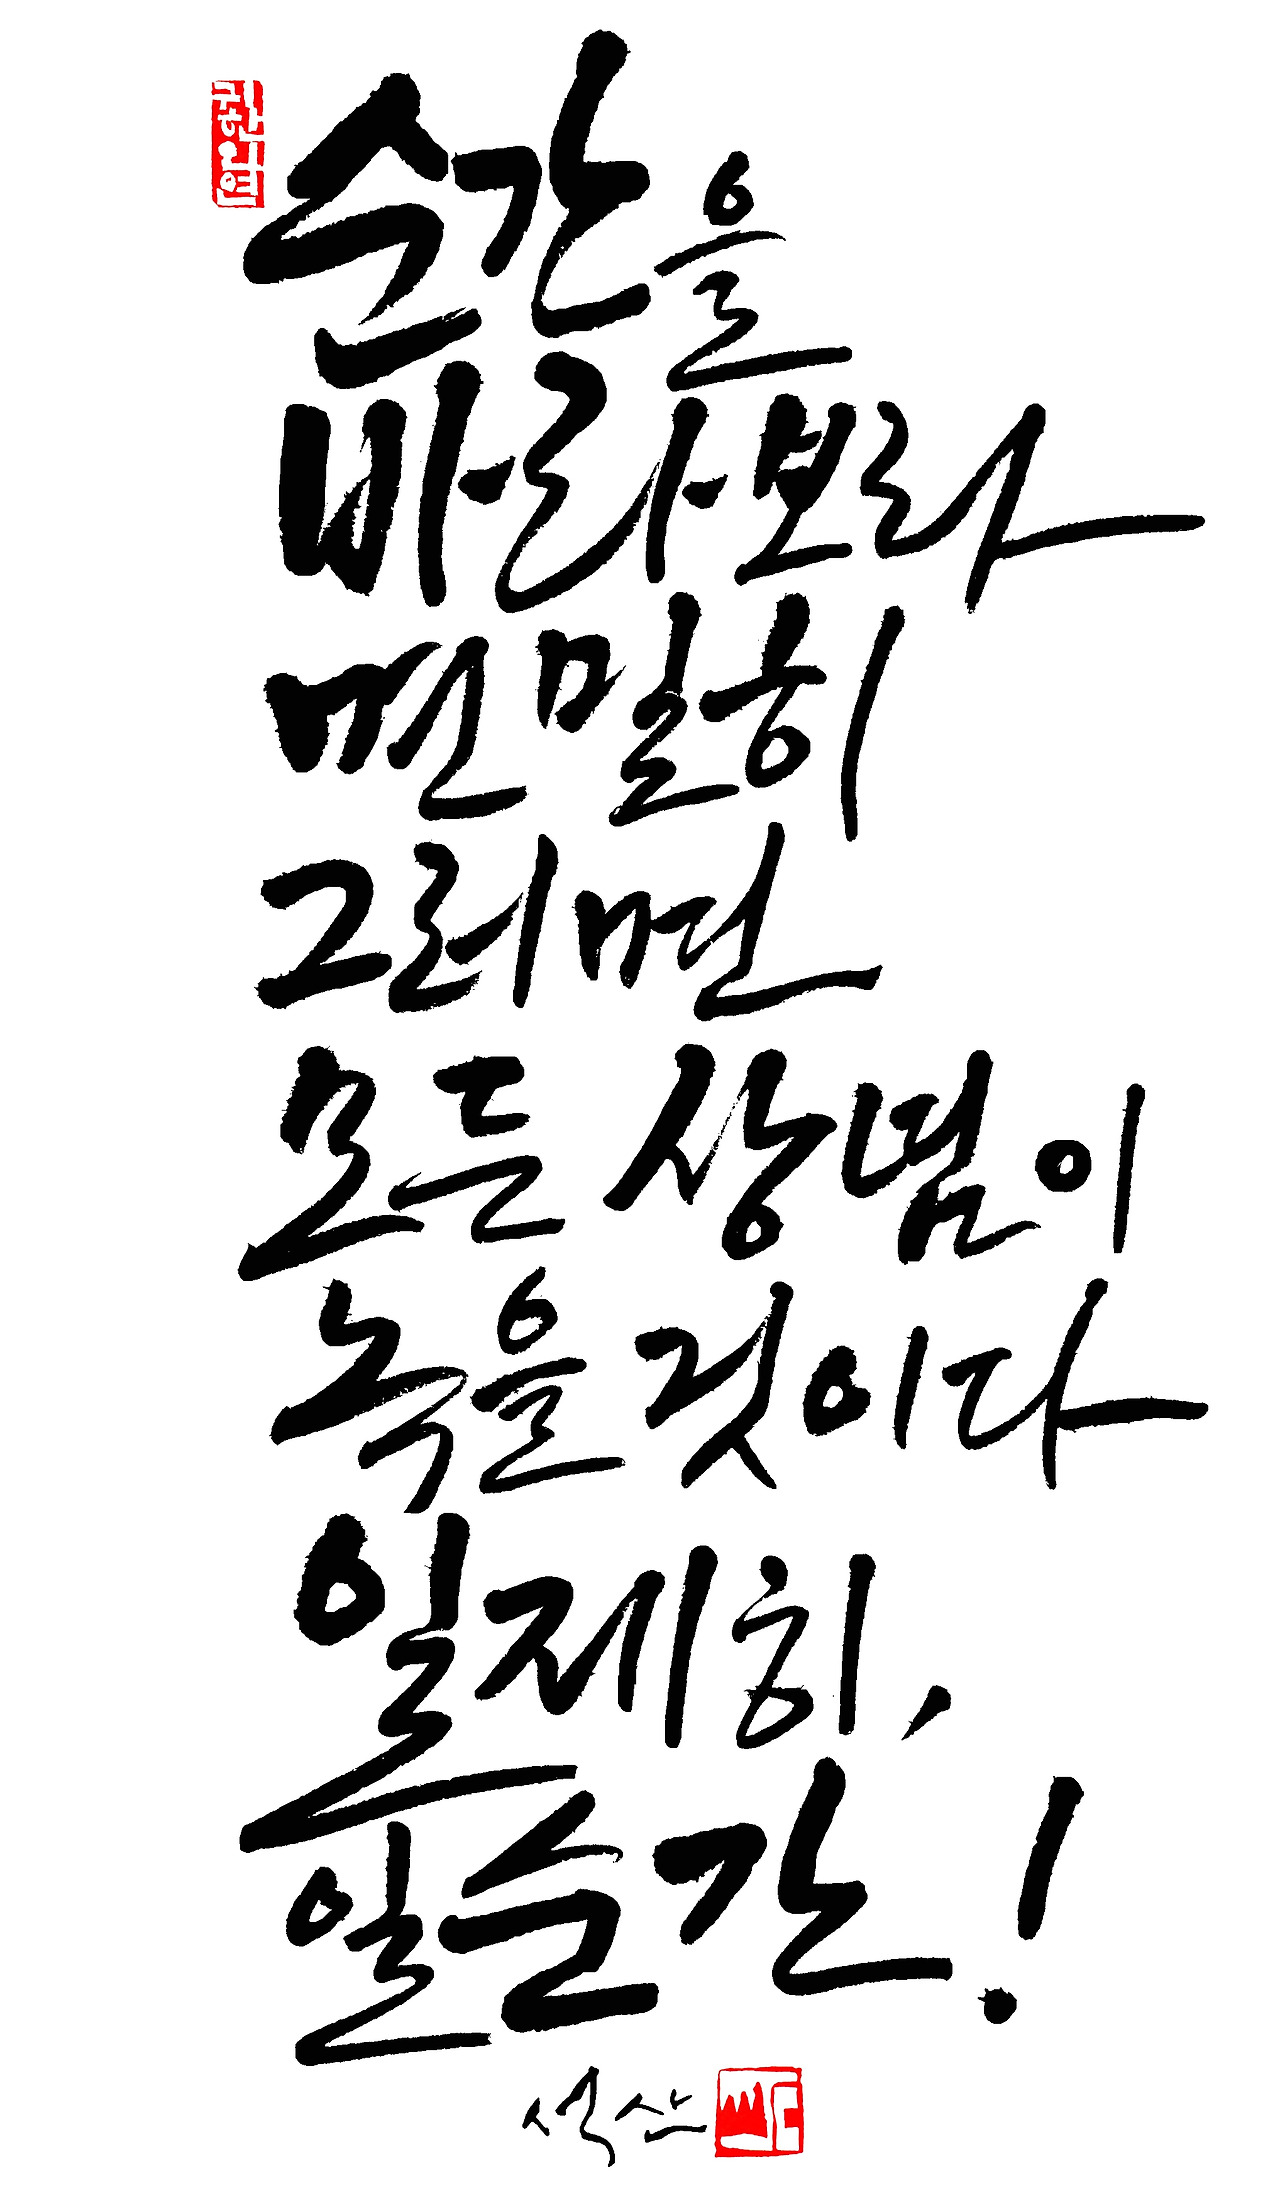 순간을
바라보라
면밀히
그러면
모든 상념이
녹을 것이다
일제히,
일순간!
석산